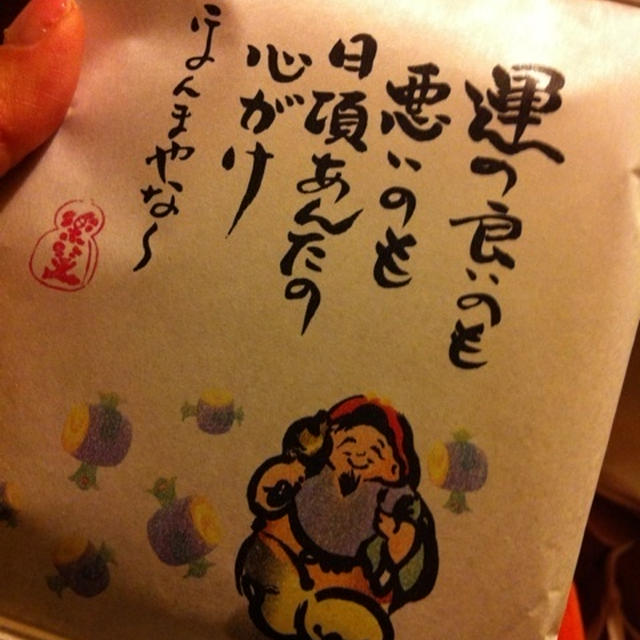 運の良いのも
悪いのも
日頃あんたの
心がけ
ほんまやな〜